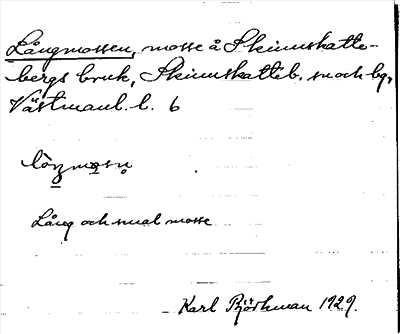 Långmossen, mosse å Skinnskatte-
bergs bruk, Skinnskatteb. sn och bg,
Västmanl. l. 6
Lång och smal mosse
Karl Björkman 1929.